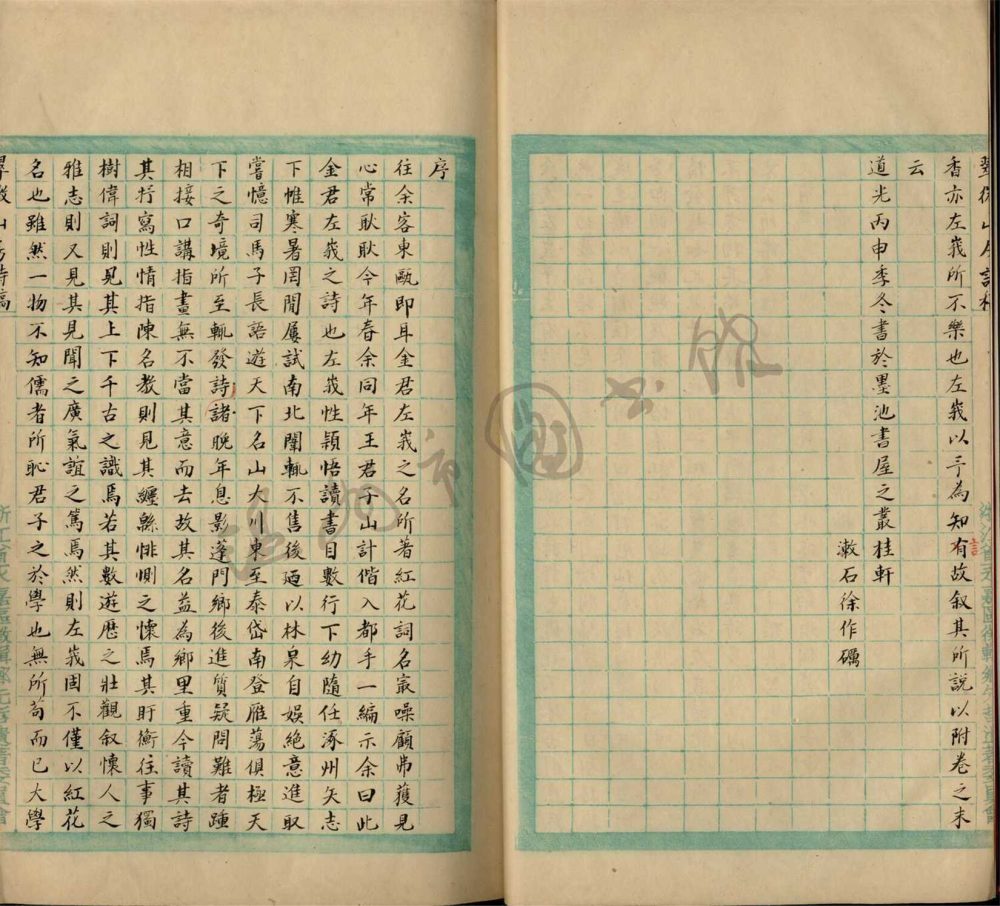 香亦左莪所不樂也左莪以予為知言有故叙其所說以附卷之末
云
道光丙申季冬書於墨池書屋之叢桂軒
漱石徐作礪
序
往余客東甌即耳金君左莪之名所著紅花詞名冣噪顧弗獲見
心常耿耿今年春余同年王君子山計偕入都手一編示余曰此
金君左莪之詩也左莪性穎悟讀書目數行下幼隨任涿州矢志
下帷寒暑罔閒屢試南北闈輒不售後迺以林泉自娛絶意進取
嘗憶司馬子長語遊天下名山大川東至泰岱南登雁蕩俱極天
下之奇境所至輒發詩諸晚年息影蓬門鄉後進質疑問難者踵
相接口講指畫無不當其意而去故其名益為鄉里重今讀其詩
其抒寫性情指陳名教則見其纏緜悱惻之懷焉其盱衡往事獨
樹偉詞則見其上下千古之識焉若其數遊歷之壯觀叙懷人之
雅志則又見其見聞之廣氣誼之篤焉然則左莪固不僅以紅花
名也雖然一物不知儒者所恥君子之於學也無所苟而已大學